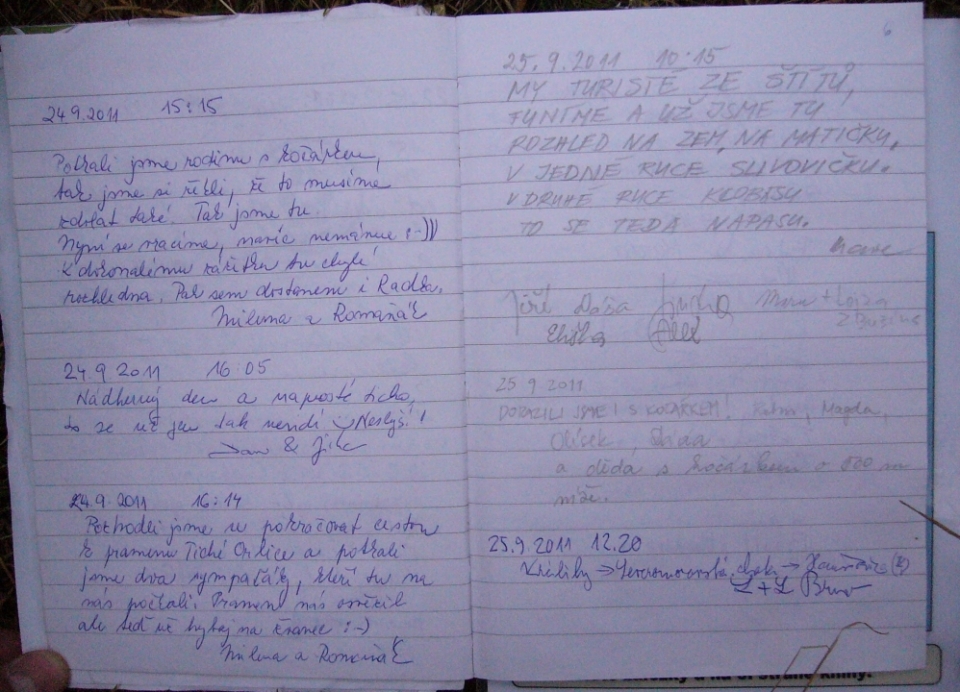 24.9.2011 15:15
Potkali jsme rodinu s kočárkem,
tak jsme si řekli, že to musíme
zdolat také. Tak jsme tu.
Nyní se vracíme, navíc nemáme :-)))
K dokonalému zážitku tu chybí
rozhledna. Pak sem dostanem i Radka.
Milena a Romaňák
24.9 2011 16:05
Nádherný den a naprosté ticho,
to se už jen tak nevidí Neslyší!
Jan & Jitka
24.9. 2011 16:14
Pochodli jsme se pokračovat cestou
k prameni Tiché Orlice a potkali
jsme dva sympaťáky, kteří tu na
nás počkali. Pramen nás osvěžil
ale teď už hybaj na kranec :-)
Milena a Romaňák
6
25.9.2011 10:15
MY TURISTÉ ZE ŠTÍTŮ,
FUNÍME A UŽ JSME TU
ROZHLED NA ZEM, NA MATIČKU,
V JEDNÉ RUCE SLIVOVIČKU.
V DRUHÉ RUCE KLOBÁSU
TO SE TEDA NAPASU.
Jiří Dáša
Eliška
25 9 2011
DORAZILI JSME I S KOČÁRKEM! Magda,
a děda s kočárkem o 500 m
níže.
25.9.2011 12.20
Králíky → Severomoravská chata →
L + L Brno